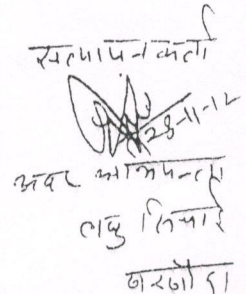 सत्यापनकर्ता
28-11-12
अवर अभियन्ता
लघु सिंचाई